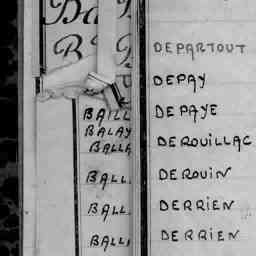 Ba
B
BAILL
BALAY
BALLA
BALL
BALL
BALLI
DEPARTOUT
DEPAY
DEPAYE
DEROUILLAC
DEROUIN
DERRIEN
DERRIEN